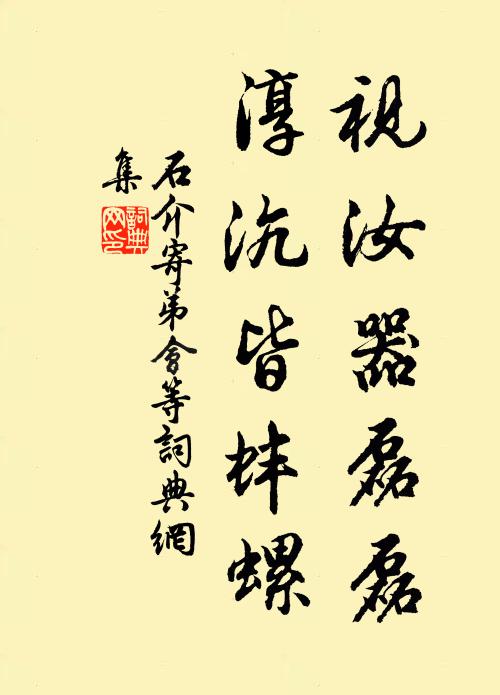 視汝器磊磊
淳沉皆蚌螺
石介寄弟會等詞典網
集
詞典
网印